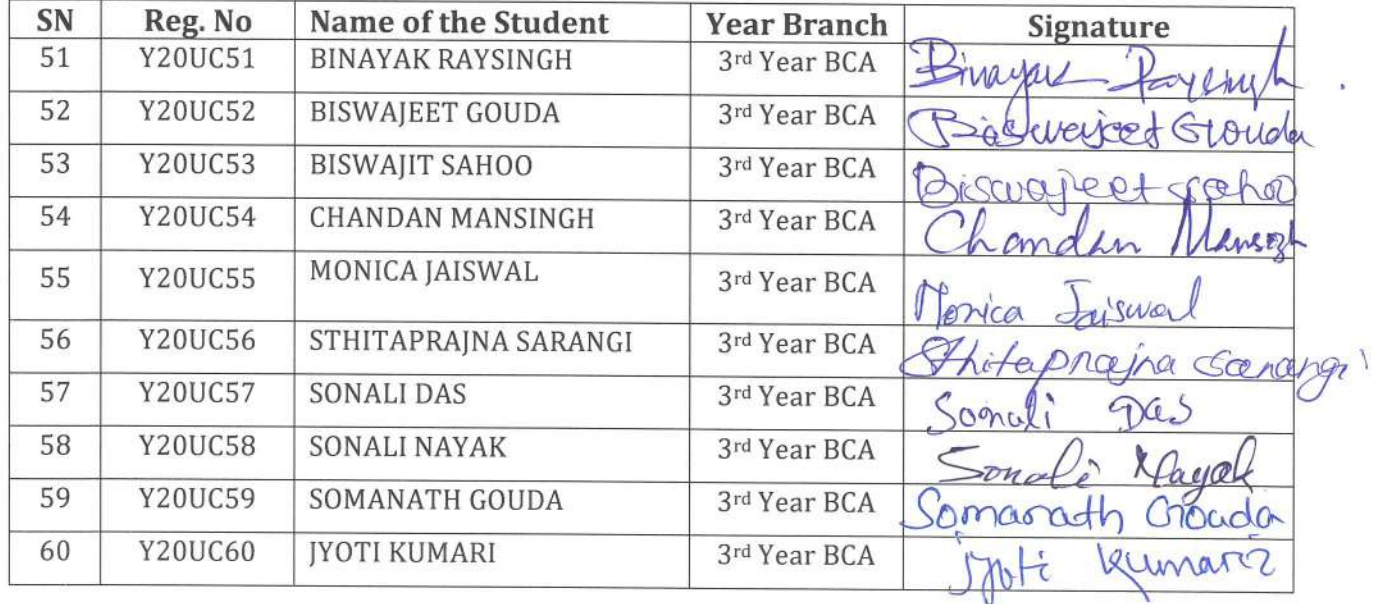 SN Reg. No Name of the Student Year Branch Signature
51 Y20UC51 BINAYAK RAYSINGH 3rd Year BCA Binayak Raysingh
52 Y20UC52 BISWAJEET GOUDA 3rd Year BCA Biswajeet Gouda
53 Y20UC53 BISWAJIT SAHOO 3rd Year BCA Biswajeet sahoo
54 Y20UC54 CHANDAN MANSINGH 3rd Year BCA Chandan Mansingh
55 Y20UC55 MONICA JAISWAL 3rd Year BCA Monica Jaiswal
56 Y20UC56 STHITAPRAJNA SARANGI 3rd Year BCA Sthitaprajna Sarangi
57 Y20UC57 SONALI DAS 3rd Year BCA Sonali Das
58 Y20UC58 SONALI NAYAK 3rd Year BCA Sonali Nayak
59 Y20UC59 SOMANATH GOUDA 3rd Year BCA Somanath Gouda
60 Y20UC60 JYOTI KUMARI 3rd Year BCA jyoti kumari